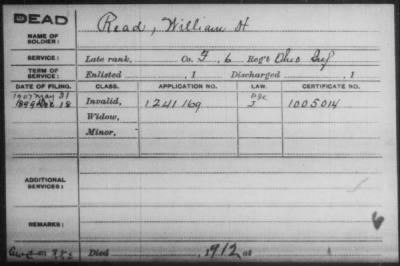 DEAD
NAME OF SOLDIER: Read, William H
SERVICE: Late rank, Co. F, 6 Reg't Ohio Inf
TERM OF SERVICE: Enlisted , 1 Discharged , 1
DATE OF FILING. CLASS. APPLICATION NO. LAW. CERTIFICATE NO.
1907 May 31
1899 Dec 18 Invalid, 1241169 J 1005014
Widow,
Minor,
ADDITIONAL SERVICES:
REMARKS:
6
Died , 1912 at